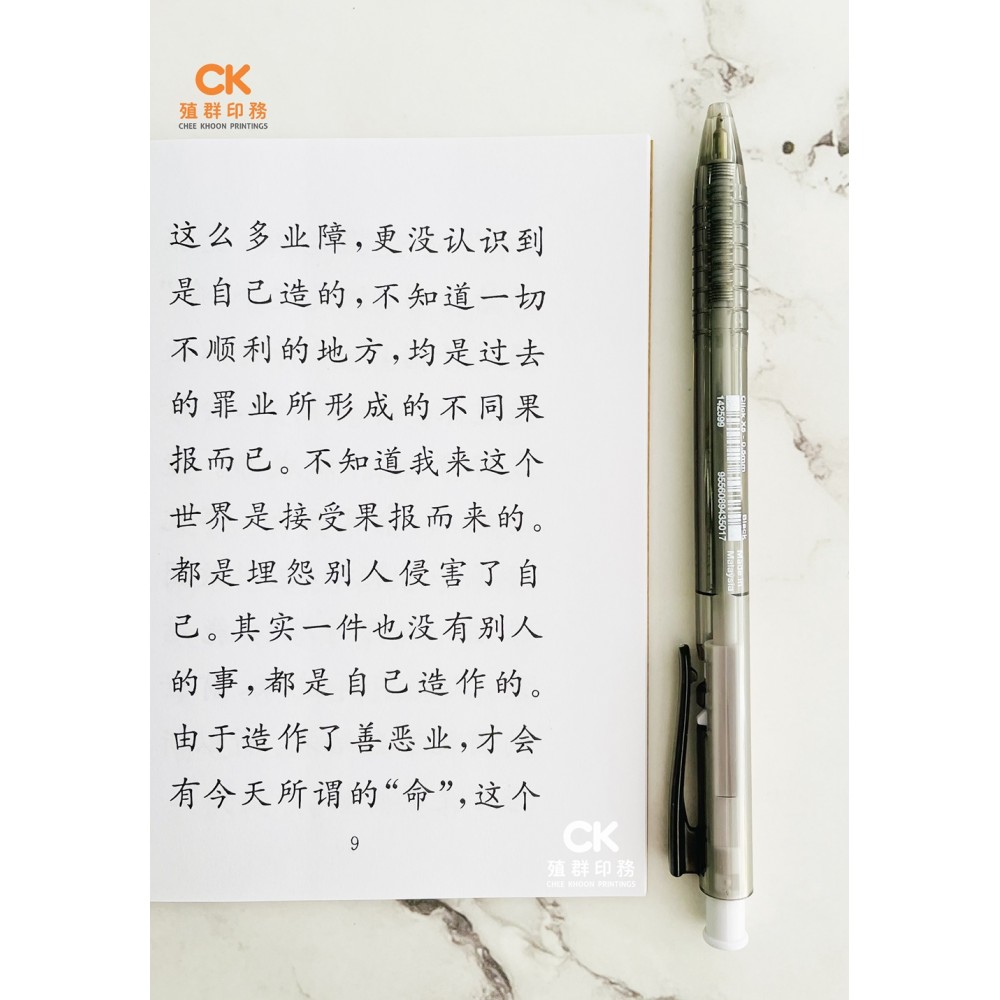 CK
殖群印務
CHEE KHOON PRINTINGS
这么多业障，更没认识到
是自己造的，不知道一切
不顺利的地方，均是过去
的罪业所形成的不同果
报而已。不知道我来这个
世界是接受果报而来的。
都是埋怨别人侵害了自
己。其实一件也没有别人
的事，都是自己造作的。
由于造作了善恶业，才会
有今天所谓的“命”，这个
9
CK
殖群印務
CHEE KHOON PRINTINGS
142599
9556089435017
Black
Malaysia